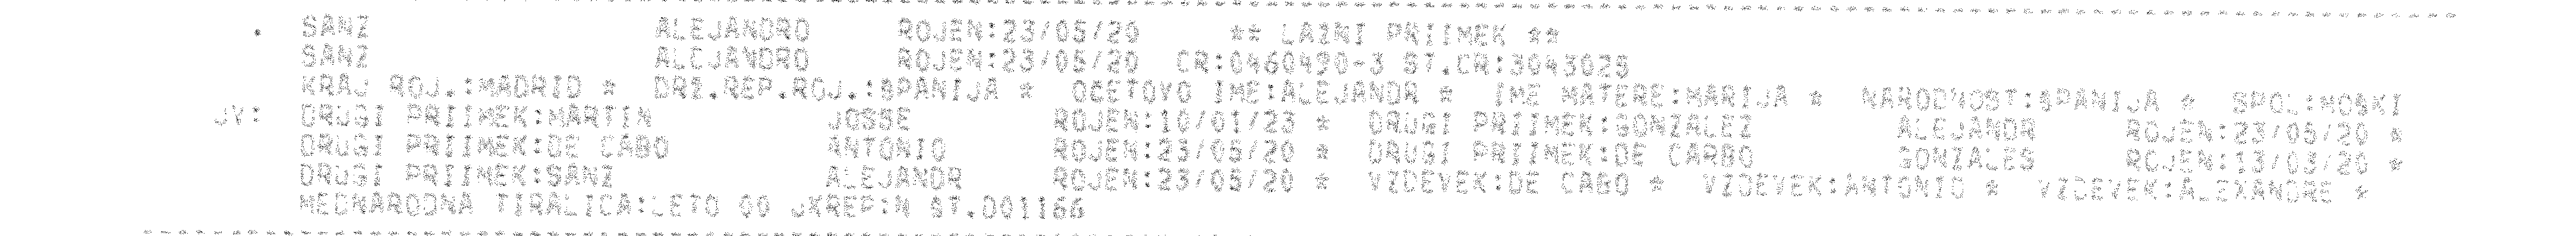 . SANZ ALEJANDRO ROJEN:23/05/20 ** LAZNI PRIIMEK **
SANZ ALEJANDRO ROJEN:23/05/20 CR:0460490-3 ST.CR:3043025
KRAJ ROJ.:MADRID * DRZ.REP.ROJ.:SPANIJA * OCETOVO IME:ALEJANDR * IME MATERE:MARIJA * NARODNOST:SPANIJA * SPOL:MOSKI
JV: DRUGI PRIIMEK:MARTIN JOSSE ROJEN:10/01/23 * DRUGI PRIIMEK:GONZALEZ ALEJANDR ROJEN:23/05/20 *
DRUGI PRIIMEK:DE CABO ANTONIO ROJEN:23/05/20 * DRUGI PRIIMEK:DE CARBO GONZALES ROJEN:13/03/20 *
DRUGI PRIIMEK:SANZ ALEJANDR ROJEN:23/05/20 * VZDEVEK:DE CABO * VZDEVEK:ANTONIO * VZDEVEK:ALEXANDRE *
MEDNARODNA TIRALICA:LETO 90 JXREP:N ST.001166